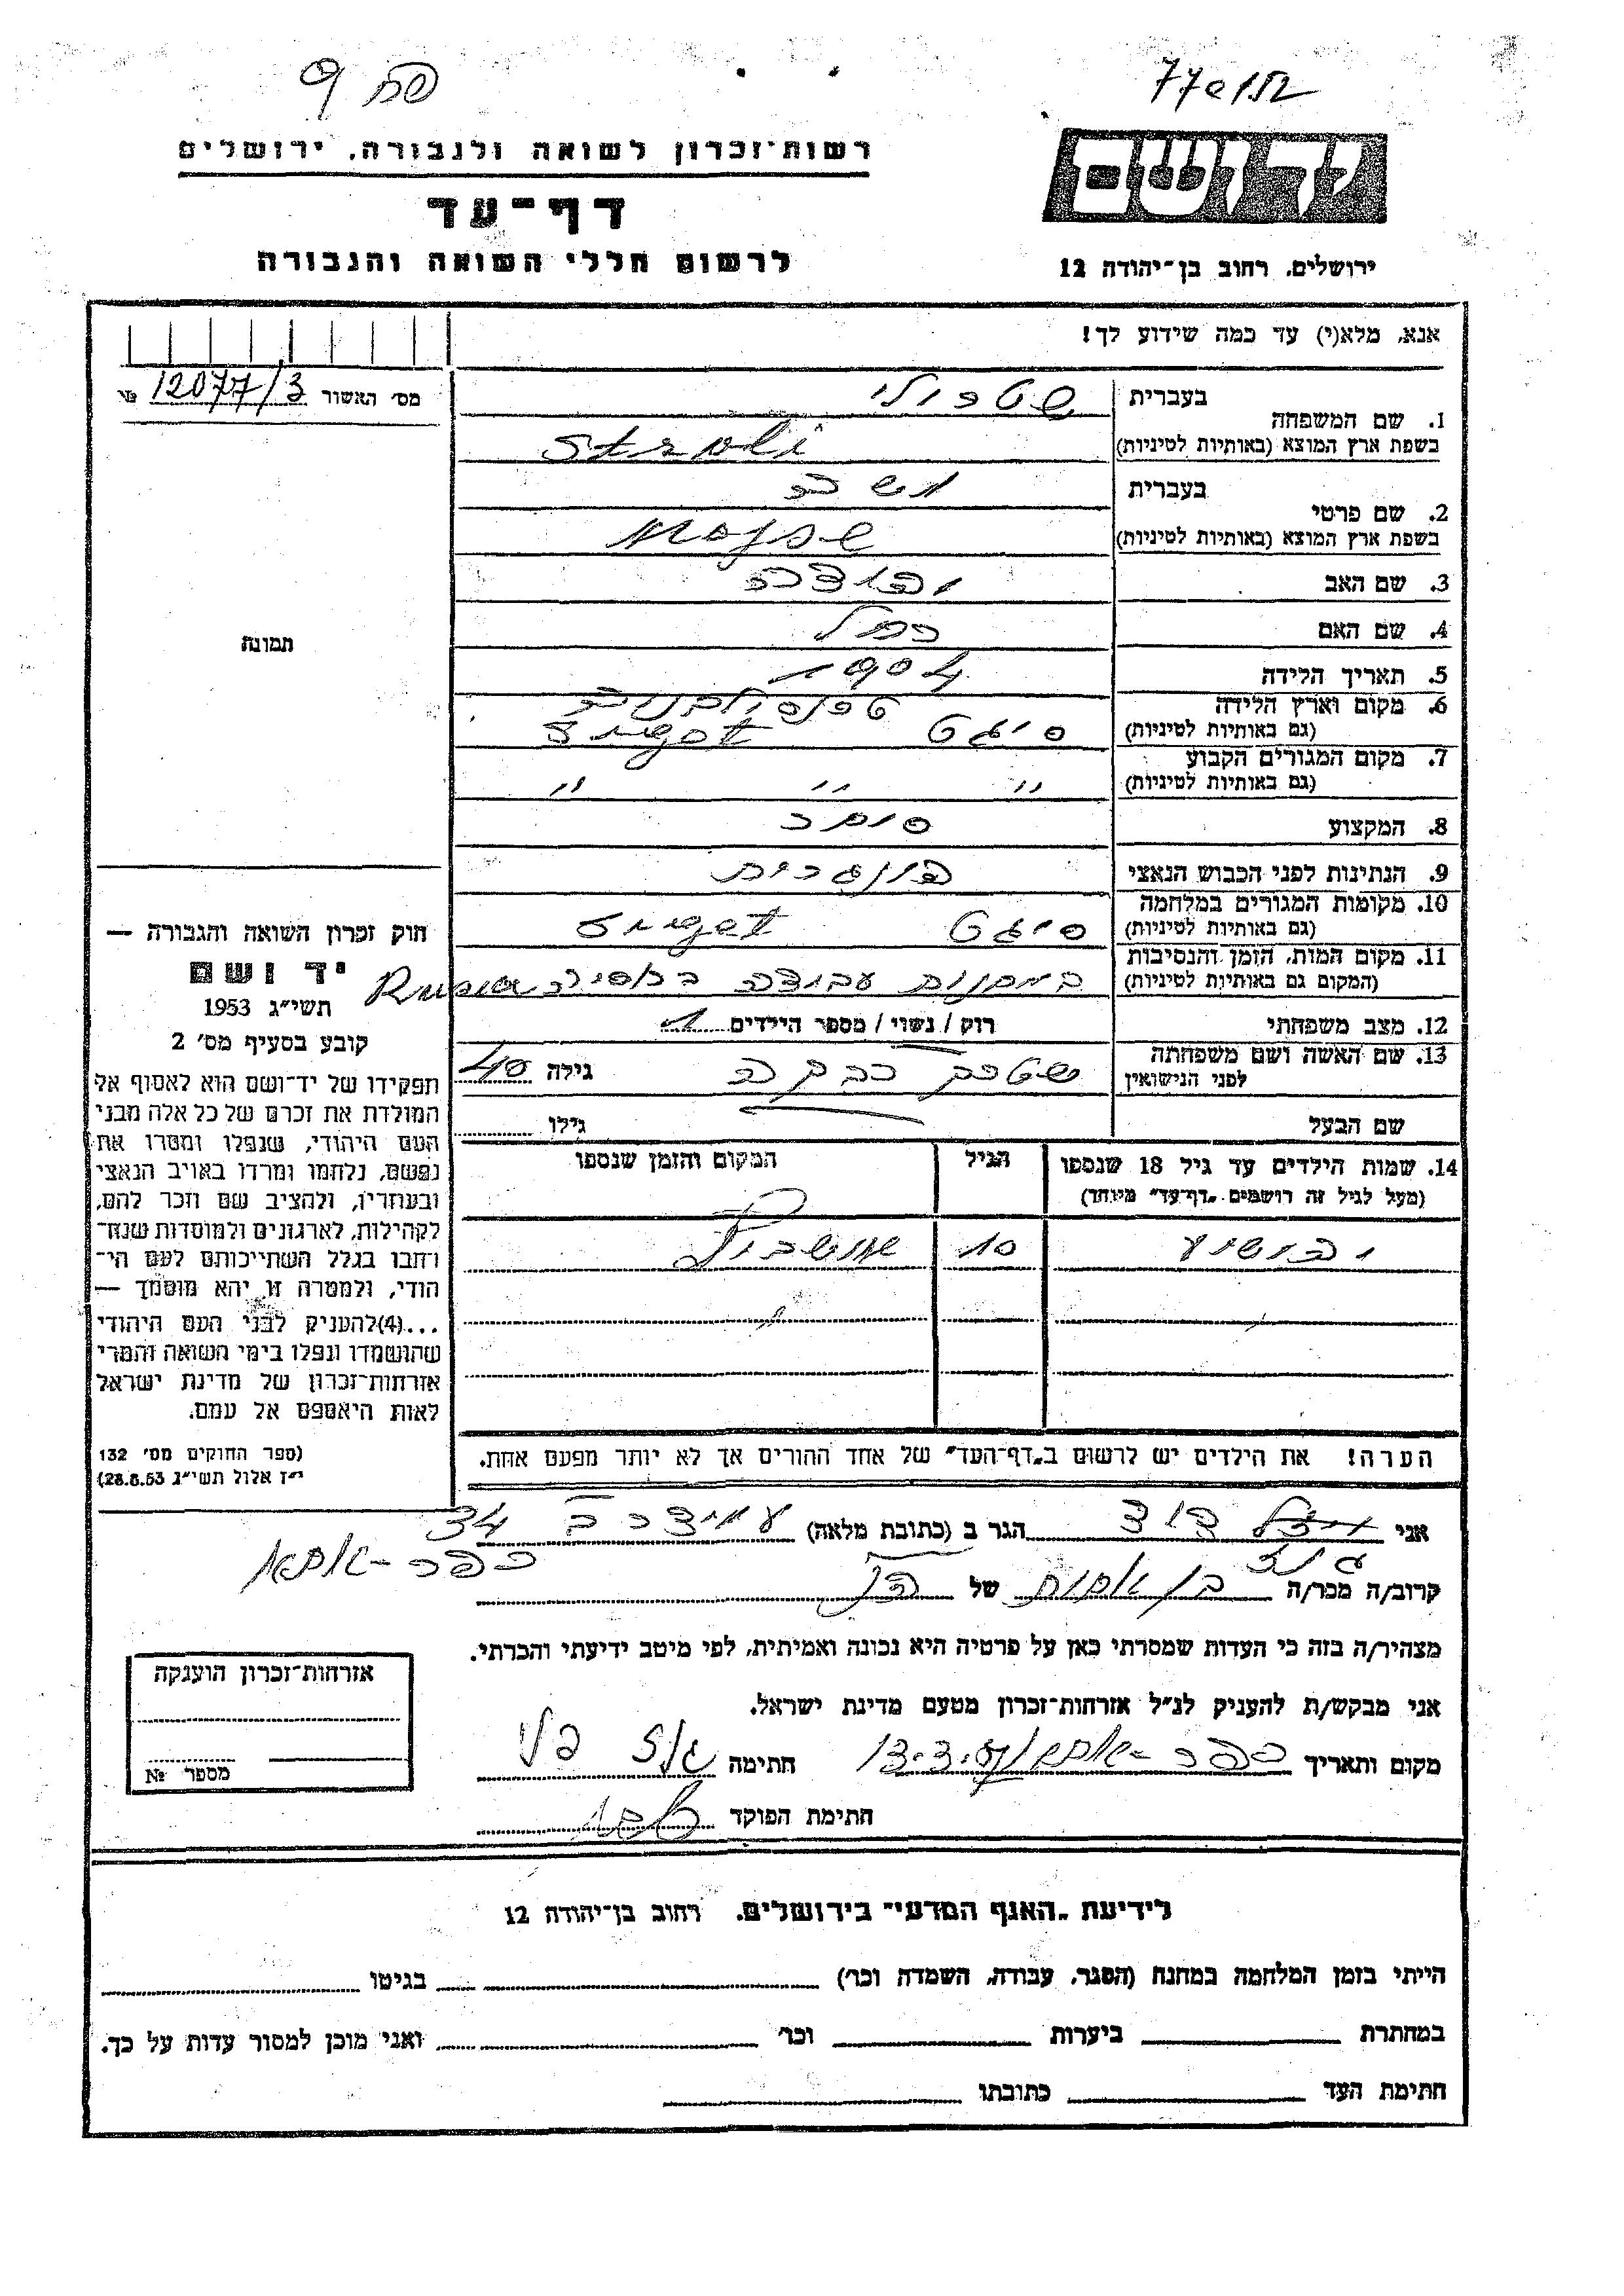 רשות־זכרון לשואה ולגבורה, ירושלים
דף־עד
לרשום חללי השואה והגבורה
יד ושם
ירושלים, רחוב בן־יהודה 12
אנא, מלא(י) עד כמה שידוע לך!
מס' האשור 12077/3 №
1. שם המשפחה
בעברית שטרולי
בשפת ארץ המוצא (באותיות לטיניות) Stroli
2. שם פרטי
בעברית משה
בשפת ארץ המוצא (באותיות לטיניות)
3. שם האב יהודה
4. שם האם רחל
5. תאריך הלידה 1904
6. מקום וארץ הלידה טרנסילבניה
(גם באותיות לטיניות) סיגט Siget
7. מקום המגורים הקבוע
(גם באותיות לטיניות) " " "
8. המקצוע סוחר
9. הנתינות לפני הכבוש הנאצי הונגרית
10. מקומות המגורים במלחמה
(גם באותיות לטיניות) סיגט Siget
11. מקום המות, הזמן והנסיבות
(המקום גם באותיות לטיניות) במחנות עבודה ברוסיה Rusia
12. מצב משפחתי רוק / נשוי / מספר הילדים 1
13. שם האשה ושם משפחתה
לפני הנישואין רבקה גילה 40
שם הבעל גילו
14. שמות הילדים עד גיל 18 שנספו
(מעל לגיל זה רושמים „דף־עד" מיוחד)
הגיל
המקום והזמן שנספו
יהושע 10 אושביץ
הערה! את הילדים יש לרשום ב„דף־העד" של אחד ההורים אך לא יותר מפעם אחת.
תמונה
חוק זכרון השואה והגבורה —
יד ושם
תשי"ג 1953
קובע בסעיף מס' 2
תפקידו של יד־ושם הוא לאסוף אל
המולדת את זכרם של כל אלה מבני
העם היהודי, שנפלו ומסרו את
נפשם, נלחמו ומרדו באויב הנאצי
ובעוזריו, ולהציב שם וזכר להם,
לקהילות, לארגונים ולמוסדות שנח־
רחבו בגלל השתייכותם לעם הי־
הודי, ולמטרה זו יהא מוסמך —
...(4) להעניק לבני העם היהודי
שהושמדו ונפלו בימי השואה והמרי
אזרחות־זכרון של מדינת ישראל
לאות היאספם אל עמם.
(ספר החוקים מס' 132
י"ז אלול תשי"ג 28.8.53)
אני דוד הגר ב (כתובת מלאה) 34
כפר־אתא
קרוב/ה מכר/ה בן אחות של
מצהיר/ה בזה כי העדות שמסרתי כאן על פרטיה היא נכונה ואמיתית, לפי מיטב ידיעתי והכרתי.
אני מבקש/ת להעניק לנ"ל אזרחות־זכרון מטעם מדינת ישראל.
מקום ותאריך כפר־אתא חתימה
חתימת הפוקד
אזרחות־זכרון הוענקה
מספר №
לידיעת „האגף המדעי" בירושלים, רחוב בן־יהודה 12
הייתי בזמן המלחמה במחנה (הסגר, עבודה, השמדה וכר') בגיטו
במחתרת ביערות וכר' ואני מוכן למסור עדות על כך.
חתימת העד כתובתו